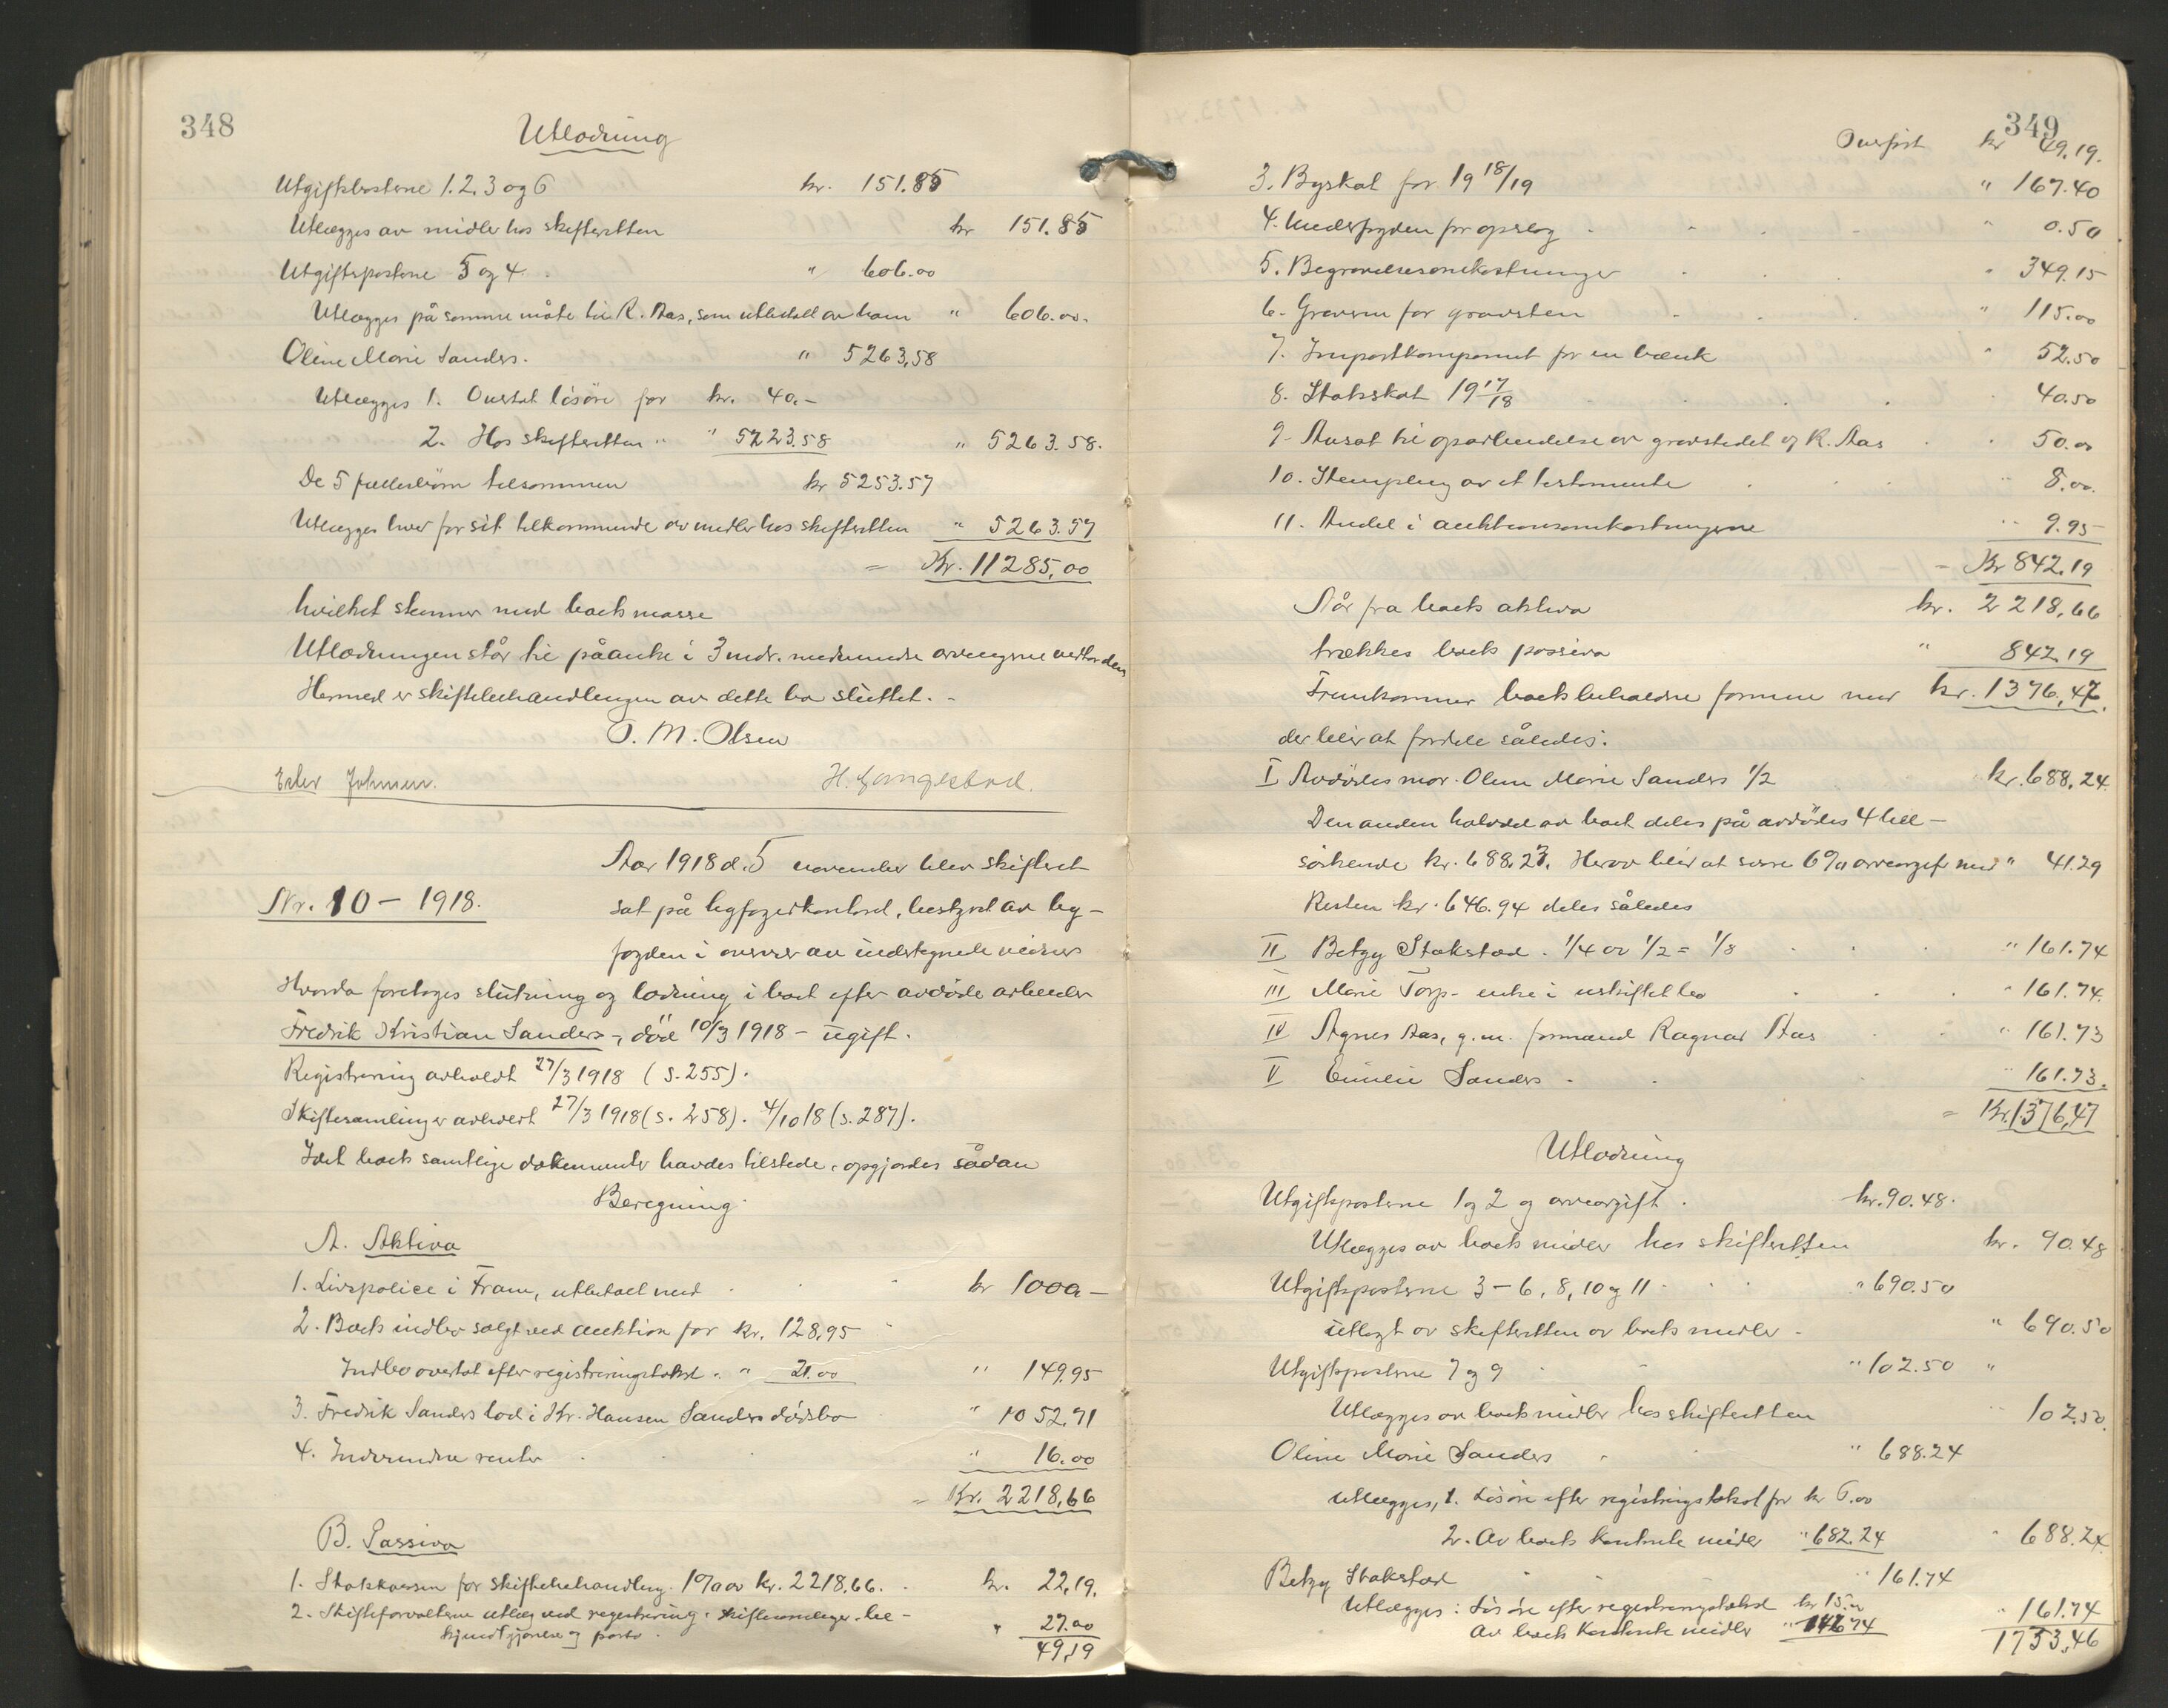 348
Utlodning
Utgiftspostene 1.2.3 og 6 kr. 151.85
Utlægges av midler hos skifteretten kr 151.85
Utgiftspostene 5 og 4. " 606.00
Utlægges på samme måte til R. Aas, som utbetalt av ham " 606.00.
Oline Marie Sanders. " 5263,58
Utlægges 1. Overtat løsøre for kr. 40.-
2. Hos skifteretten " " 5223.58 " 5263.58.
De 5 fællesbørn tilsammen kr 5253.57
Utlægges hver for sit tilkommende av midler hos skifteretten " 5263.57
= Kr. 11285,00
hvilket stemmer med boets masse
Utlodningen står til påanke i 3 mdr. medmindre arvingerne vedtar den
Hermed er skiftebehandlingen av dette bo sluttet. -
O. M. Olsen
Ester Johnsen. H. Gangestad.
Aar 1918 d. 5 november blev skifteret
Nr. 10 - 1918.
sat på byfogedkontoret, bestyret av by-
fogden i overvær av undertegnede vidner
Hvorda foretoges slutning og lodning i boet efter avdøde arbeider
Fredrik Kristian Sanders, død 10/3 1918 - ugift.
Registrering avholdt 27/3 1918 (s. 255).
Skiftesamlinger avholdt 27/3 1918 (s. 258). 4/10 18 (s. 287).
Idet boets samtlige dokumenter havdes tilstede, opgjordes sådan
Beregning
A. Aktiva
1. Livspolice i Fram, utbetalt med kr 1000 -
2. Boets indbo solgt ved auktion for kr. 128,95
Indbo overtat efter registreringstakst . " 21.00 " 149.95
3. Fredrik Sanders lod i Kr. Hansen Sanders dødsbo " 1052,71
4. Indvundne renter " 16.00
= Kr. 2218,66
B. Passiva
1. Statskassen for skiftebehandling. 1% av kr. 2218.66. kr. 22,19.
2. Skifteforvalterens utlæg ved registrering, skiftesamlinger, be-
kjendtgjørelse og porto. " 27.00
49,19
349
Overført kr 49.19.
3. Byskat for 19 18/19 " 167.40
4. Underfogden for opslag " 0.50
5. Begravelsesomkostninger " 349.15
6. Graveren for gravsten " 115.00
7. Importkompaniet for en bænk " 52.50
8. Statsskat 19 17/18 40.50
9. Avsat til oparbeidelse av gravstedet v/ R. Aas " 50.00
10. Stempling av et testamente " 8.00.
11. Andel i auktionsomkostningerne " 9.95
= Kr 842.19
Når fra boets aktiva kr. 2218,66
trækkes boets passiva " 842,19
Fremkommer boets beholdne formue med kr. 1376,47.
der blir at fordele således.
I Avdødes mor. Oline Marie Sanders 1/2 kr. 688,24.
Den anden halvdel av boet deles på avdødes 4 hel-
søskende kr. 688.23. Herav blir at svare 6% arveavgift med " 41.29
Resten kr. 646.94 deles således
II Betzy Stakstad. 1/4 av 1/2 = 1/8 " 161.74
III Marie Torp - enke i uskiftet bo " 161.74.
IV Agnes Aas, g.m. formand Ragnar Aas " 161.73
V Emilie Sanders - " 161.73.
= Kr. 1376,47
Utlodning
Utgiftsposterne 1 og 2 og arveavgift. kr. 90.48.
Utlægges av boets midler hos skifteretten kr. 90.48
Utgiftsposterne 3 - 6, 8, 10 og 11 " 690.50
utlagt av skifteretten av boets midler - " 690.50
Utgiftsposterne 7 og 9 " 102.50 "
Utlægges av boets midler hos skifteretten 102.50.
Oline Marie Sanders " 688.24
Utlægges, 1. Løsøre efter registringstakst for kr 6.00
2. Av boets kontante midler " 682.24 " 688.24.
Betzy Stakstad " 161.74
Utlægges: Løsøre efter registreringstakst kr 15.00 " 161.74
Av boets kontante midler " 146.74
1733,46